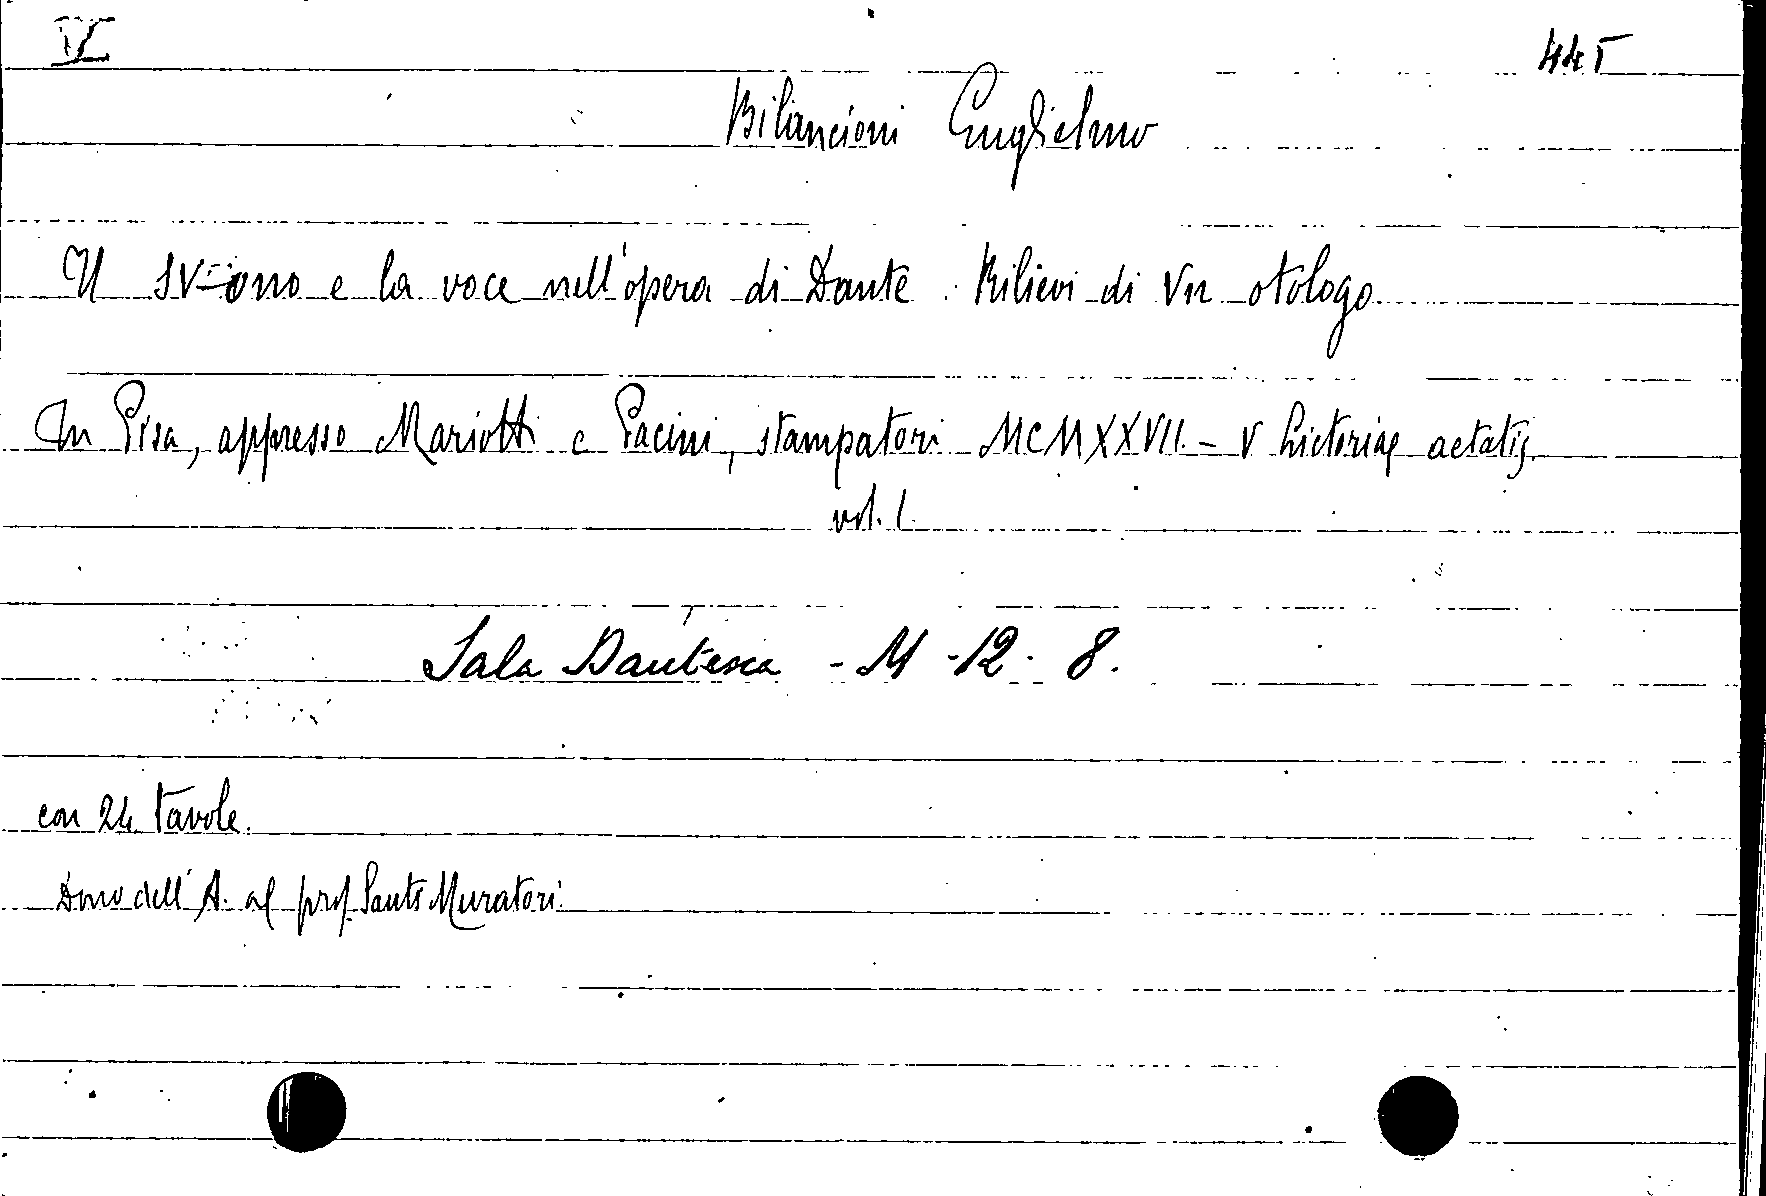 IV 445
Bilancioni Guglielmo
Il sv-ono e la voce nell'opera di Dante. Rilievi di Vn otologo.
In Pisa, appresso Mariotti e Pacini, stampatori MCMXXVII. - V lictoriae aetatis.
vol. 1
Sala Dantesca - M - 12 - 8.
con 24 tavole.
Dono dell'A. al prof. Santi Muratori.